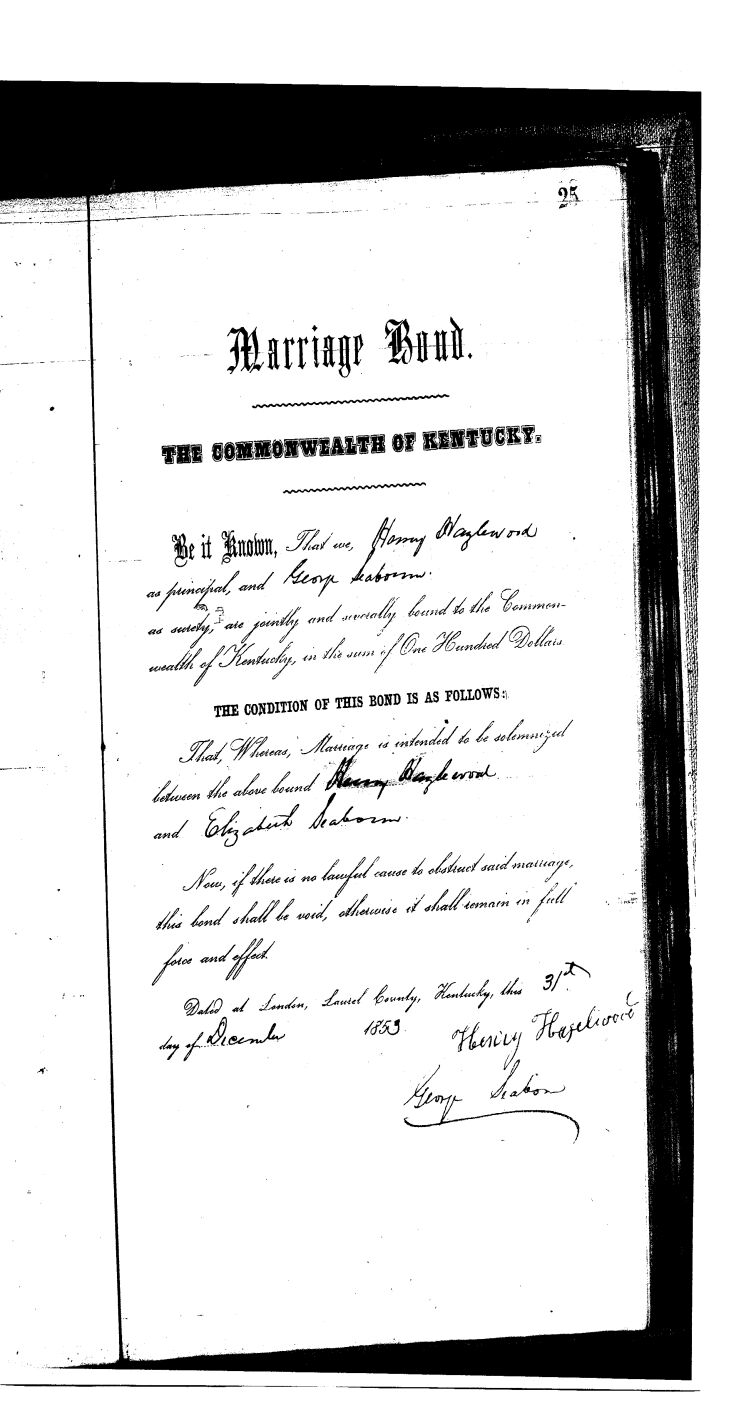 25
Marriage Bond.
THE COMMONWEALTH OF KENTUCKY.
Be it Known, That we, Henry Hazlewood
as principal, and George Seaborn.
as surety, are jointly and severally bound to the Common-
wealth of Kentucky, in the sum of One Hundred Dollars
THE CONDITION OF THIS BOND IS AS FOLLOWS:
That, Whereas, Marriage is intended to be solemnized
between the above bound Henry Hazlewood
and Elizabeth Seaborn.
Now, if there is no lawful cause to obstruct said marriage,
this bond shall be void, otherwise it shall remain in full
force and effect.
Dated at London, Laurel County, Kentucky, this 31st
day of December 1853
Henry Hazelwood
George Seabon